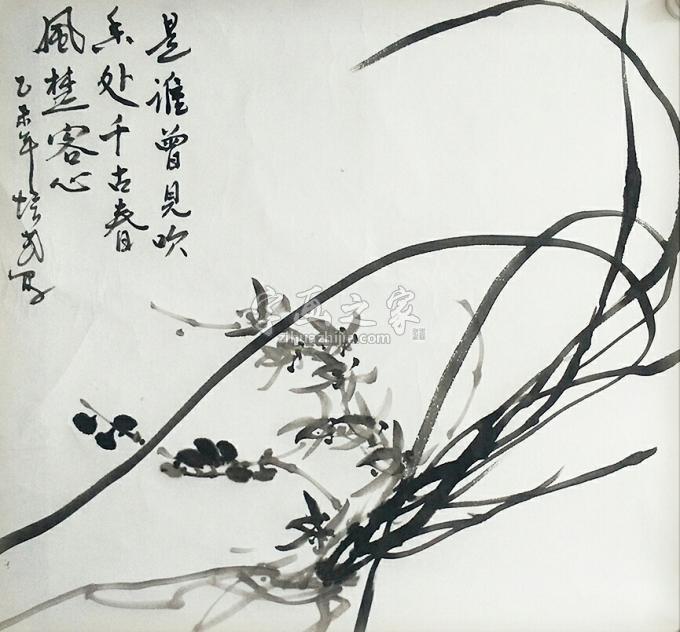 是谁曾见吹
香处千古春
風楚客心
乙未年培武写
字画之家
zihuazhijia.com